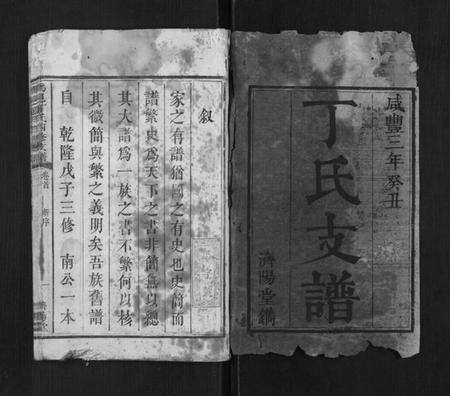 咸豐三年癸丑
丁氏支譜
濟陽堂鐫
叙
家之有譜猶國之有史也史簡而
譜繁史為天下之書非簡無以總
其大譜為一族之書不繁何以核
其微簡與繁之義明矣吾族舊譜
自 乾隆戊子三修 南公一本
卷首